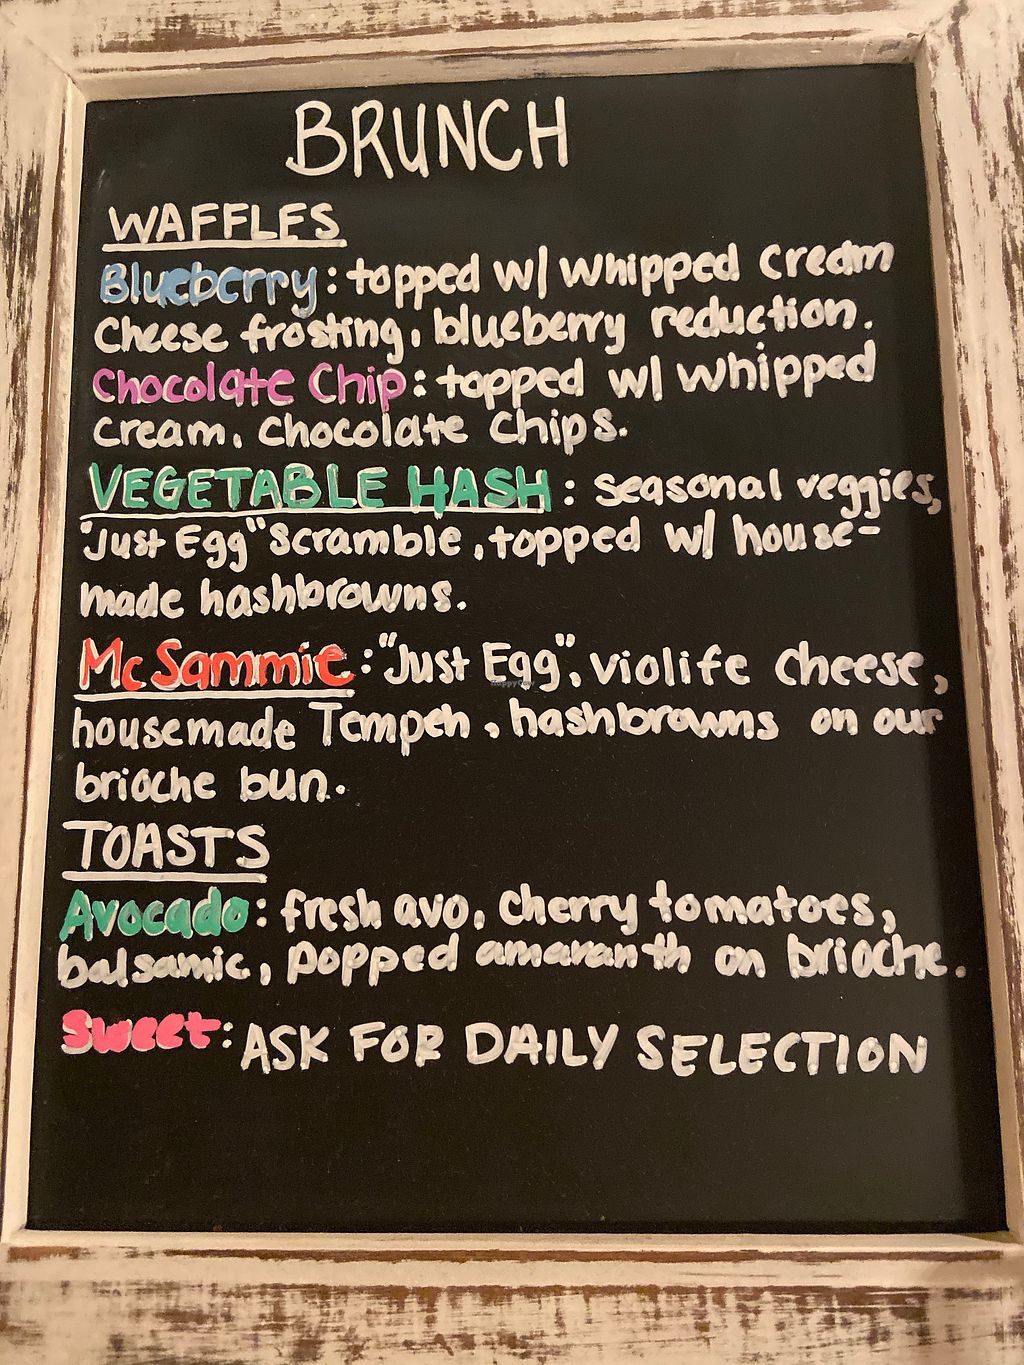 BRUNCH
WAFFLES
Blueberry: topped w/ whipped cream
cheese frosting, blueberry reduction.
Chocolate Chip: topped w/ whipped
cream, chocolate chips.
VEGETABLE HASH: seasonal veggies,
"Just Egg" scramble, topped w/ house-
made hashbrowns.
McSammie: "Just Egg", violife cheese,
HappyCow
housemade Tempeh, hashbrowns on our
brioche bun.
TOASTS
Avocado: fresh avo, cherry tomatoes,
balsamic, popped amaranth on brioche.
Sweet: ASK FOR DAILY SELECTION